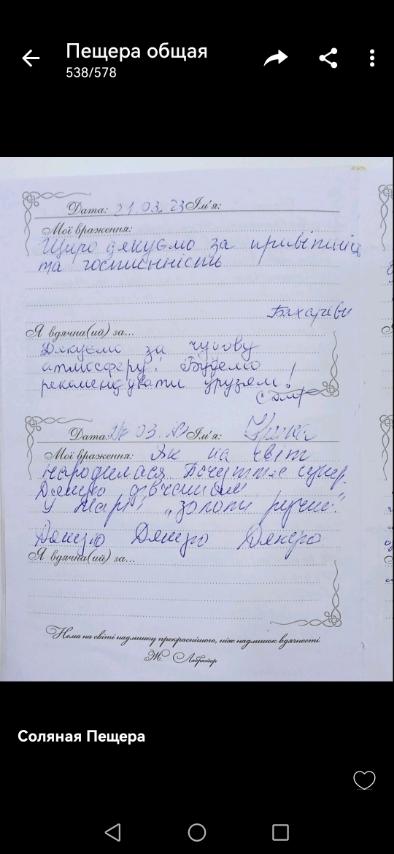 Пещера общая
538/578
Дата: 21.03.23 Ім'я:
Мої враження:
Щиро дякуємо за
та гостинність
Я вдячна(ий) за...
Дякуємо за чудову
атмосферу! Будемо
рекомендувати друзям!
Дата: 03. Ім'я:
Мої враження: Як на світ
народилася. Почуття супер.
Дякую дівчатам!
У Марії „золоті ручки".
Дякую Дякую Дякую
Я вдячна(ий) за...
Нема на світі надлишку прекраснішого, ніж надлишок вдячності
Ж. Лабрюйєр
Соляная Пещера